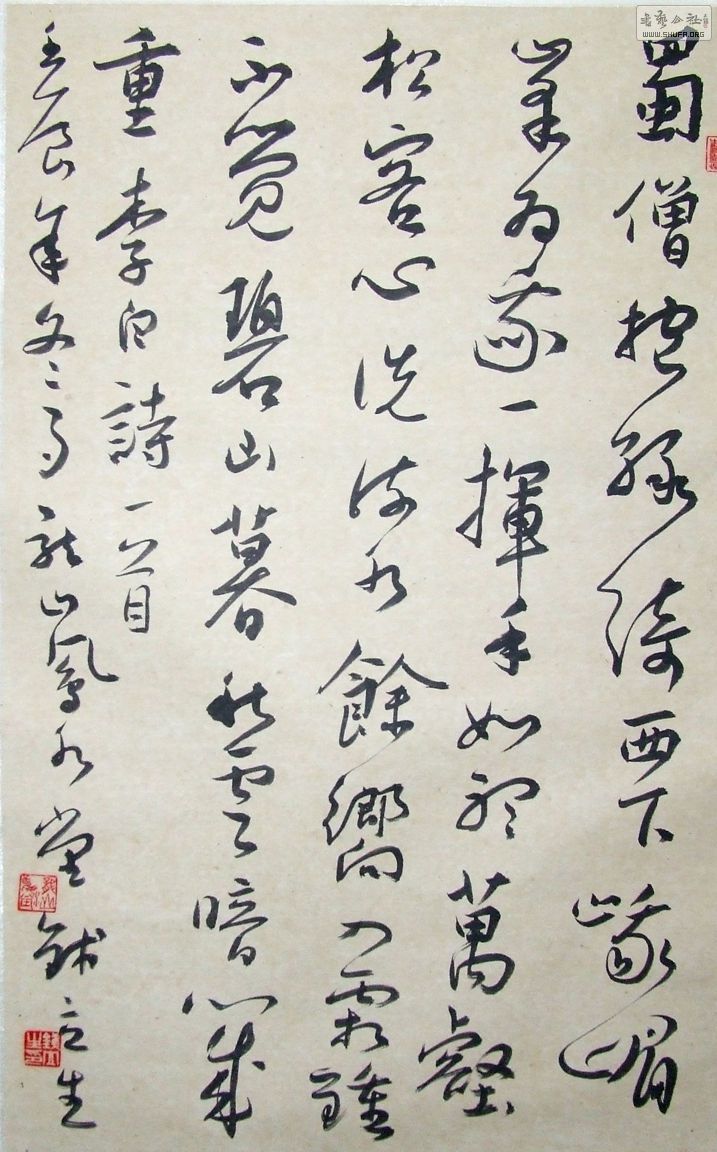 書藝公社
WWW.SHUFA.ORG
蜀僧抱綠綺西下峨嵋
峯为我一揮手如聽萬壑
松客心洗流水餘響入霜鍾
不覺碧山暮秋雲暗幾
重李白詩一首
壬辰年冬山鳳水堂立生